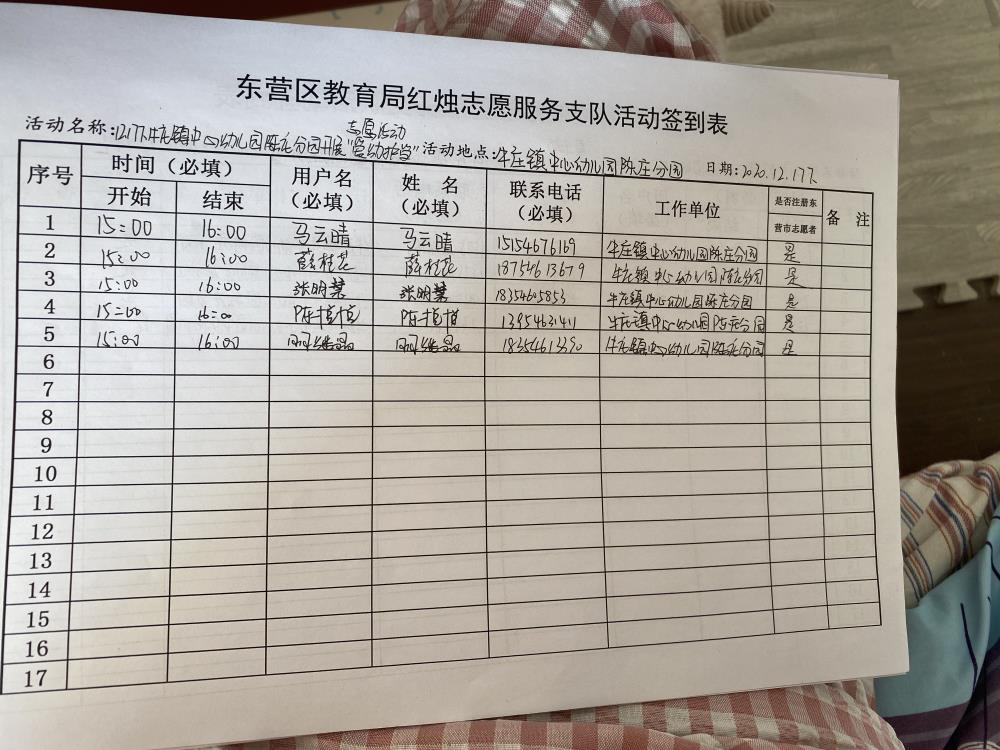 东营区教育局红烛志愿服务支队活动签到表
志愿活动
活动名称:12.17下牛庄镇中心幼儿园陈庄分园开展"爱幼护学" 活动地点:牛庄镇中心幼儿园陈庄分园 日期:2020.12.17下
序号 时间(必填) 用户名(必填) 姓 名(必填) 联系电话(必填) 工作单位 是否注册东营市志愿者 备 注
开始 结束
1 15:00 16:00 马云晴 马云晴 15154676169 牛庄镇中心幼儿园陈庄分园 是
2 15:00 16:00 薛桂花 薛桂花 18754613679 牛庄镇中心幼儿园陈庄分园 是
3 15:00 16:00 张明慧 张明慧 18354605853 牛庄镇中心幼儿园陈庄分园 是
4 15:00 16:00 陈 陈 13954631411 牛庄镇中心幼儿园陈庄分园 是
5 15:00 16:00 18354613390 牛庄镇中心幼儿园陈庄分园 是
6
7
8
9
10
11
12
13
14
15
16
17